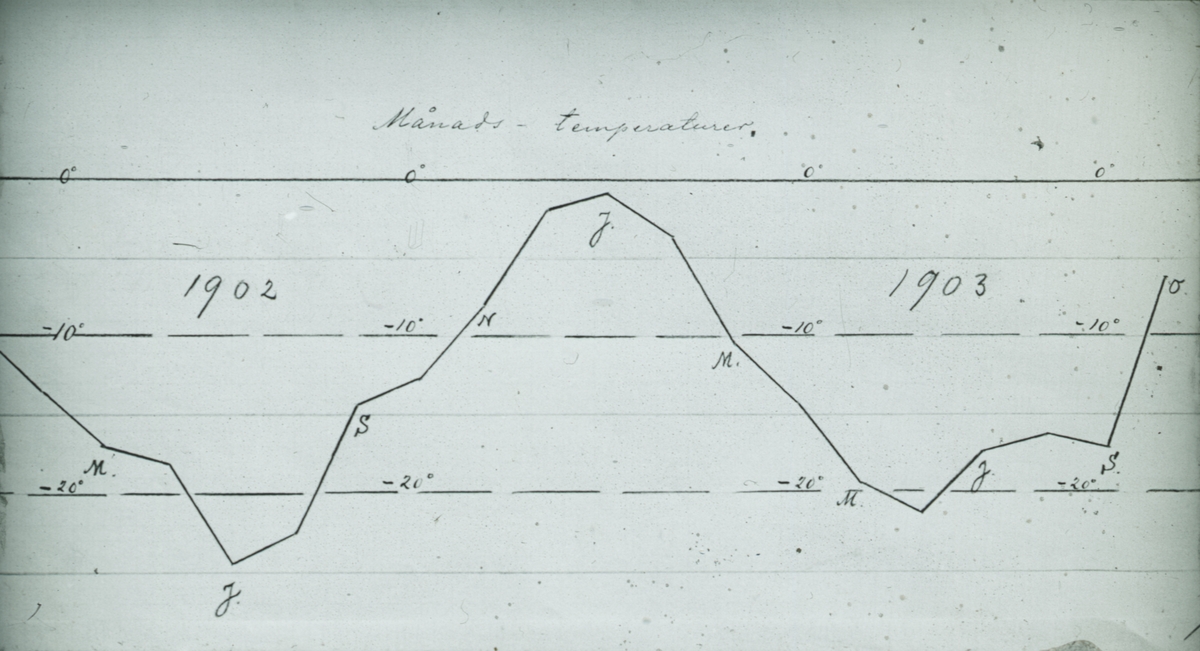 Månads - temperaturer.
0° 0° 0° 0°
1902 1903 O.
-10° -10° N -10° -10°
J.
M.
S
M. S.
J.
-20° -20° -20° -20°
M.
J.